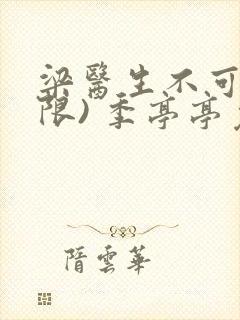 梁醫生不可
限）季亭亭
隋雲華